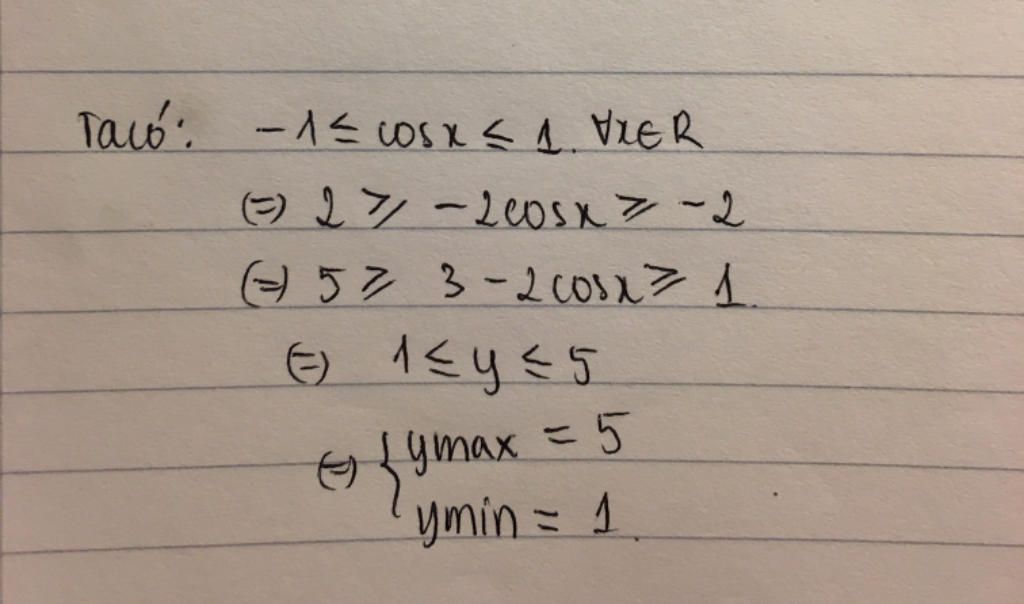 Ta có: -1 ≤ cosx ≤ 1. ∀x∈R
(=) 2 ≥ -2cosx ≥ -2
(=) 5 ≥ 3 - 2cosx ≥ 1.
(=) 1 ≤ y ≤ 5
(=) { ymax = 5
ymin = 1.